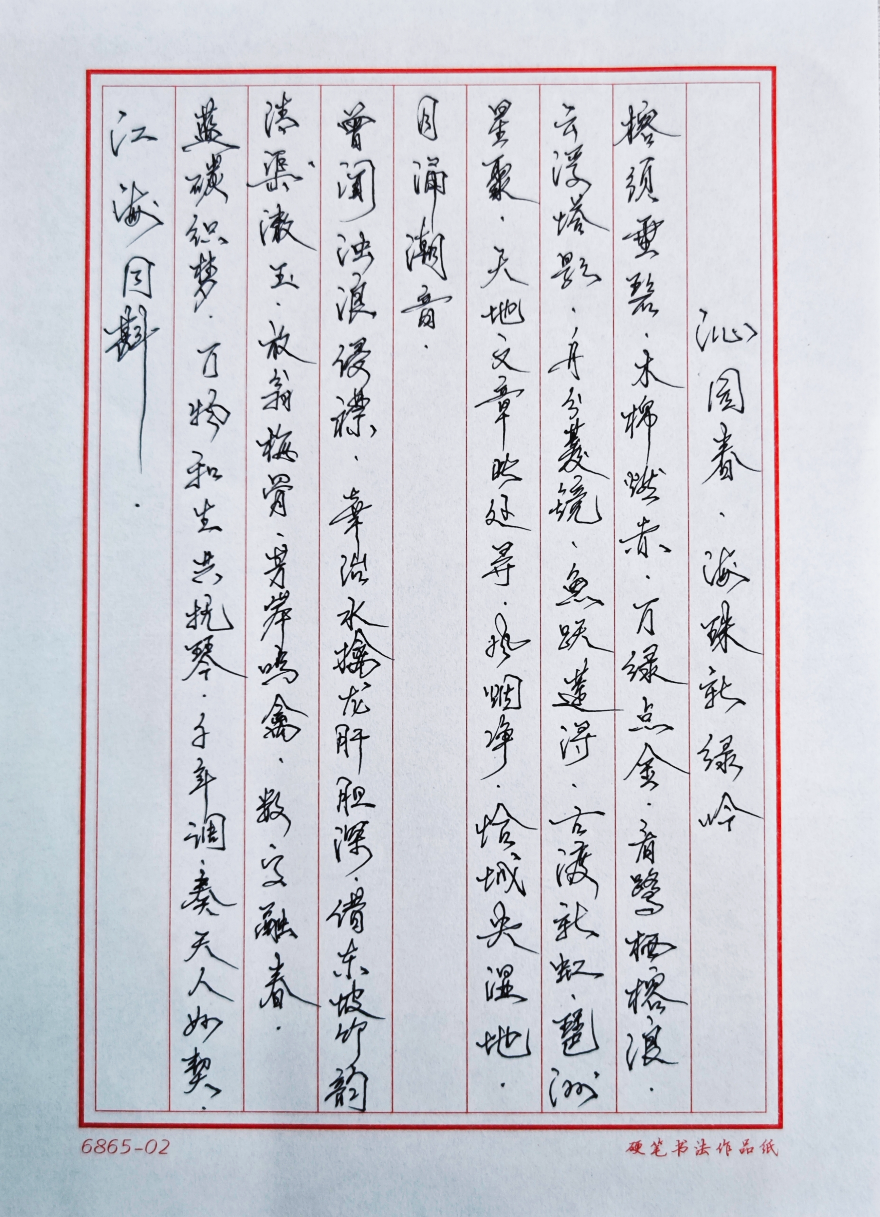 沁园春·海珠新绿吟
榕须垂碧，木棉燃赤，万绿点金。看鹭栖榕浪，
云浮塔影，舟分菱镜，鱼跃莲浔。古渡新虹，琶洲
星聚，天地文章映廷寻。风烟净，恰城央湿地，
日涌潮音。
曾闻浊浪侵襟。幸治水擒龙肝胆深。借东坡竹韵
清渠漱玉，放翁梅骨，芳岸鸣禽。数字融春，
蓝碳织梦，万物和生共抚琴。千年调，奏天人妙契，
江海同斟。
6865-02
硬笔书法作品纸